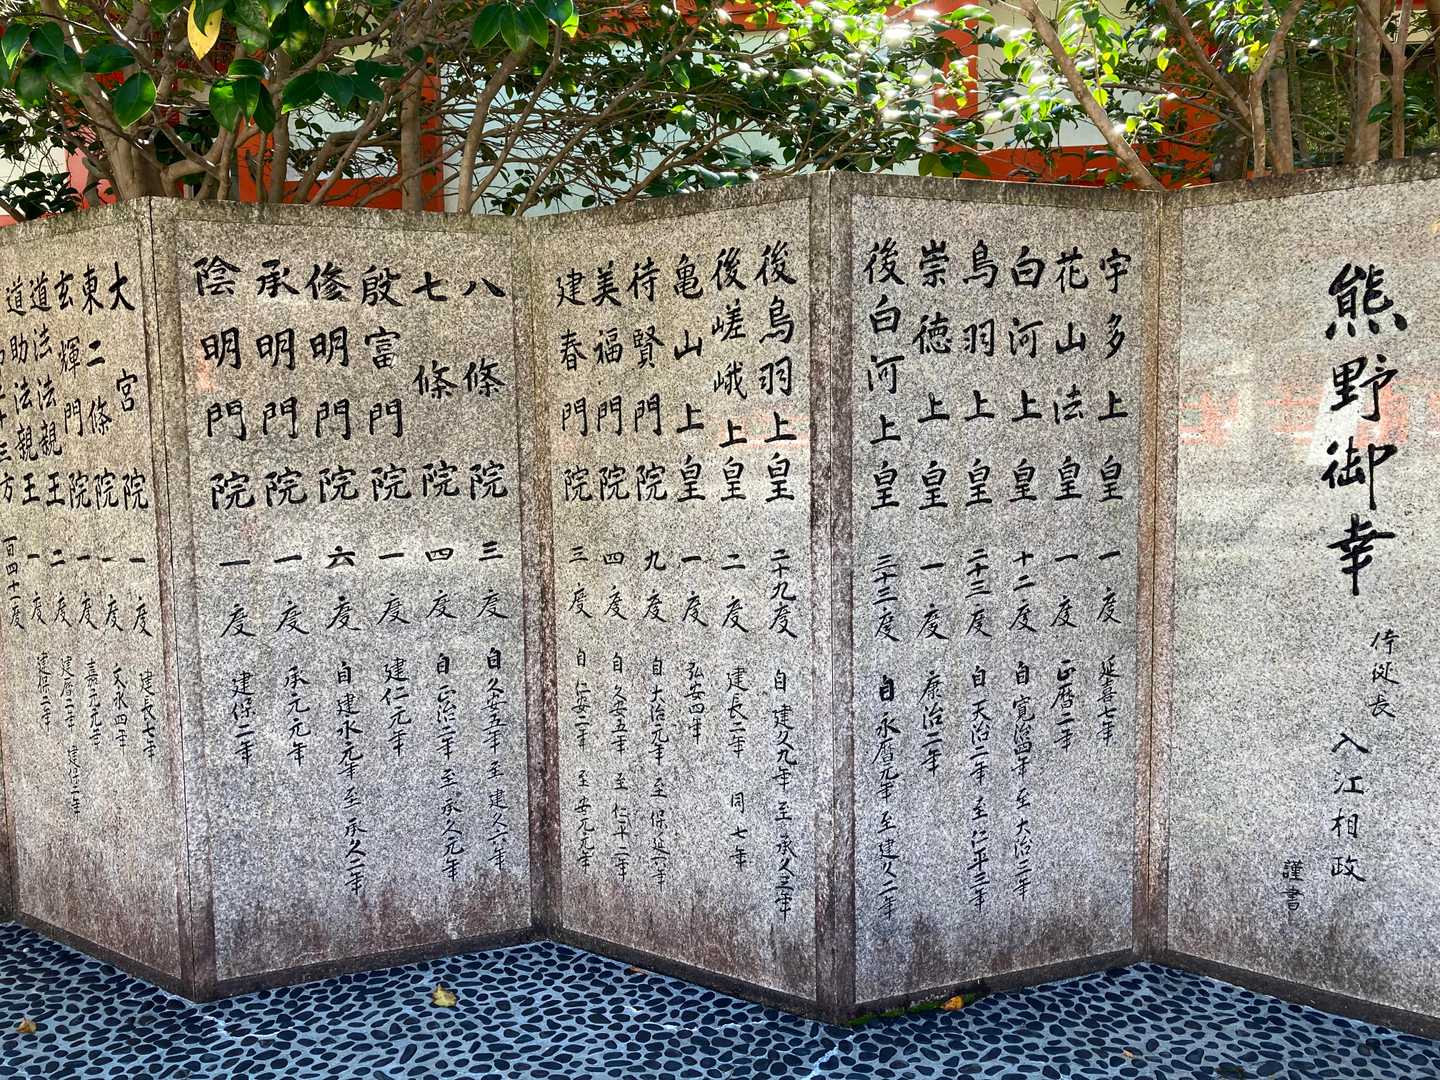 熊野御幸
侍従長
入江相政
謹書
宇多上皇 一度 延喜七年
花山法皇 一度 正暦二年
白河上皇 十二度 自寛治四年至大治三年
鳥羽上皇 二十三度 自天治二年至仁平三年
崇徳上皇 一度 康治二年
後白河上皇 三十三度 自永暦元年至建久二年
後鳥羽上皇 二十九度 自建久九年至承久三年
後嵯峨上皇 二度 建長二年 同七年
亀山上皇 一度 弘安四年
待賢門院 九度 自大治元年至保延六年
美福門院 四度 自久安五年至仁平二年
建春門院 三度 自仁安二年至安元元年
八條院 三度 自久安五年至建久六年
七條院 四度 自正治二年至承久元年
殷富門院 一度 建仁元年
修明門院 六度 自建永元年至承久二年
承明門院 一度 承元元年
陰明門院 一度 建保二年
大宮院 一度 建長七年
東二條院 一度 文永四年
玄輝門院 一度 嘉元元年
道法法親王 二度 建暦二年 建保二年
道助法親王 一度 建保二年
方 百四十一度